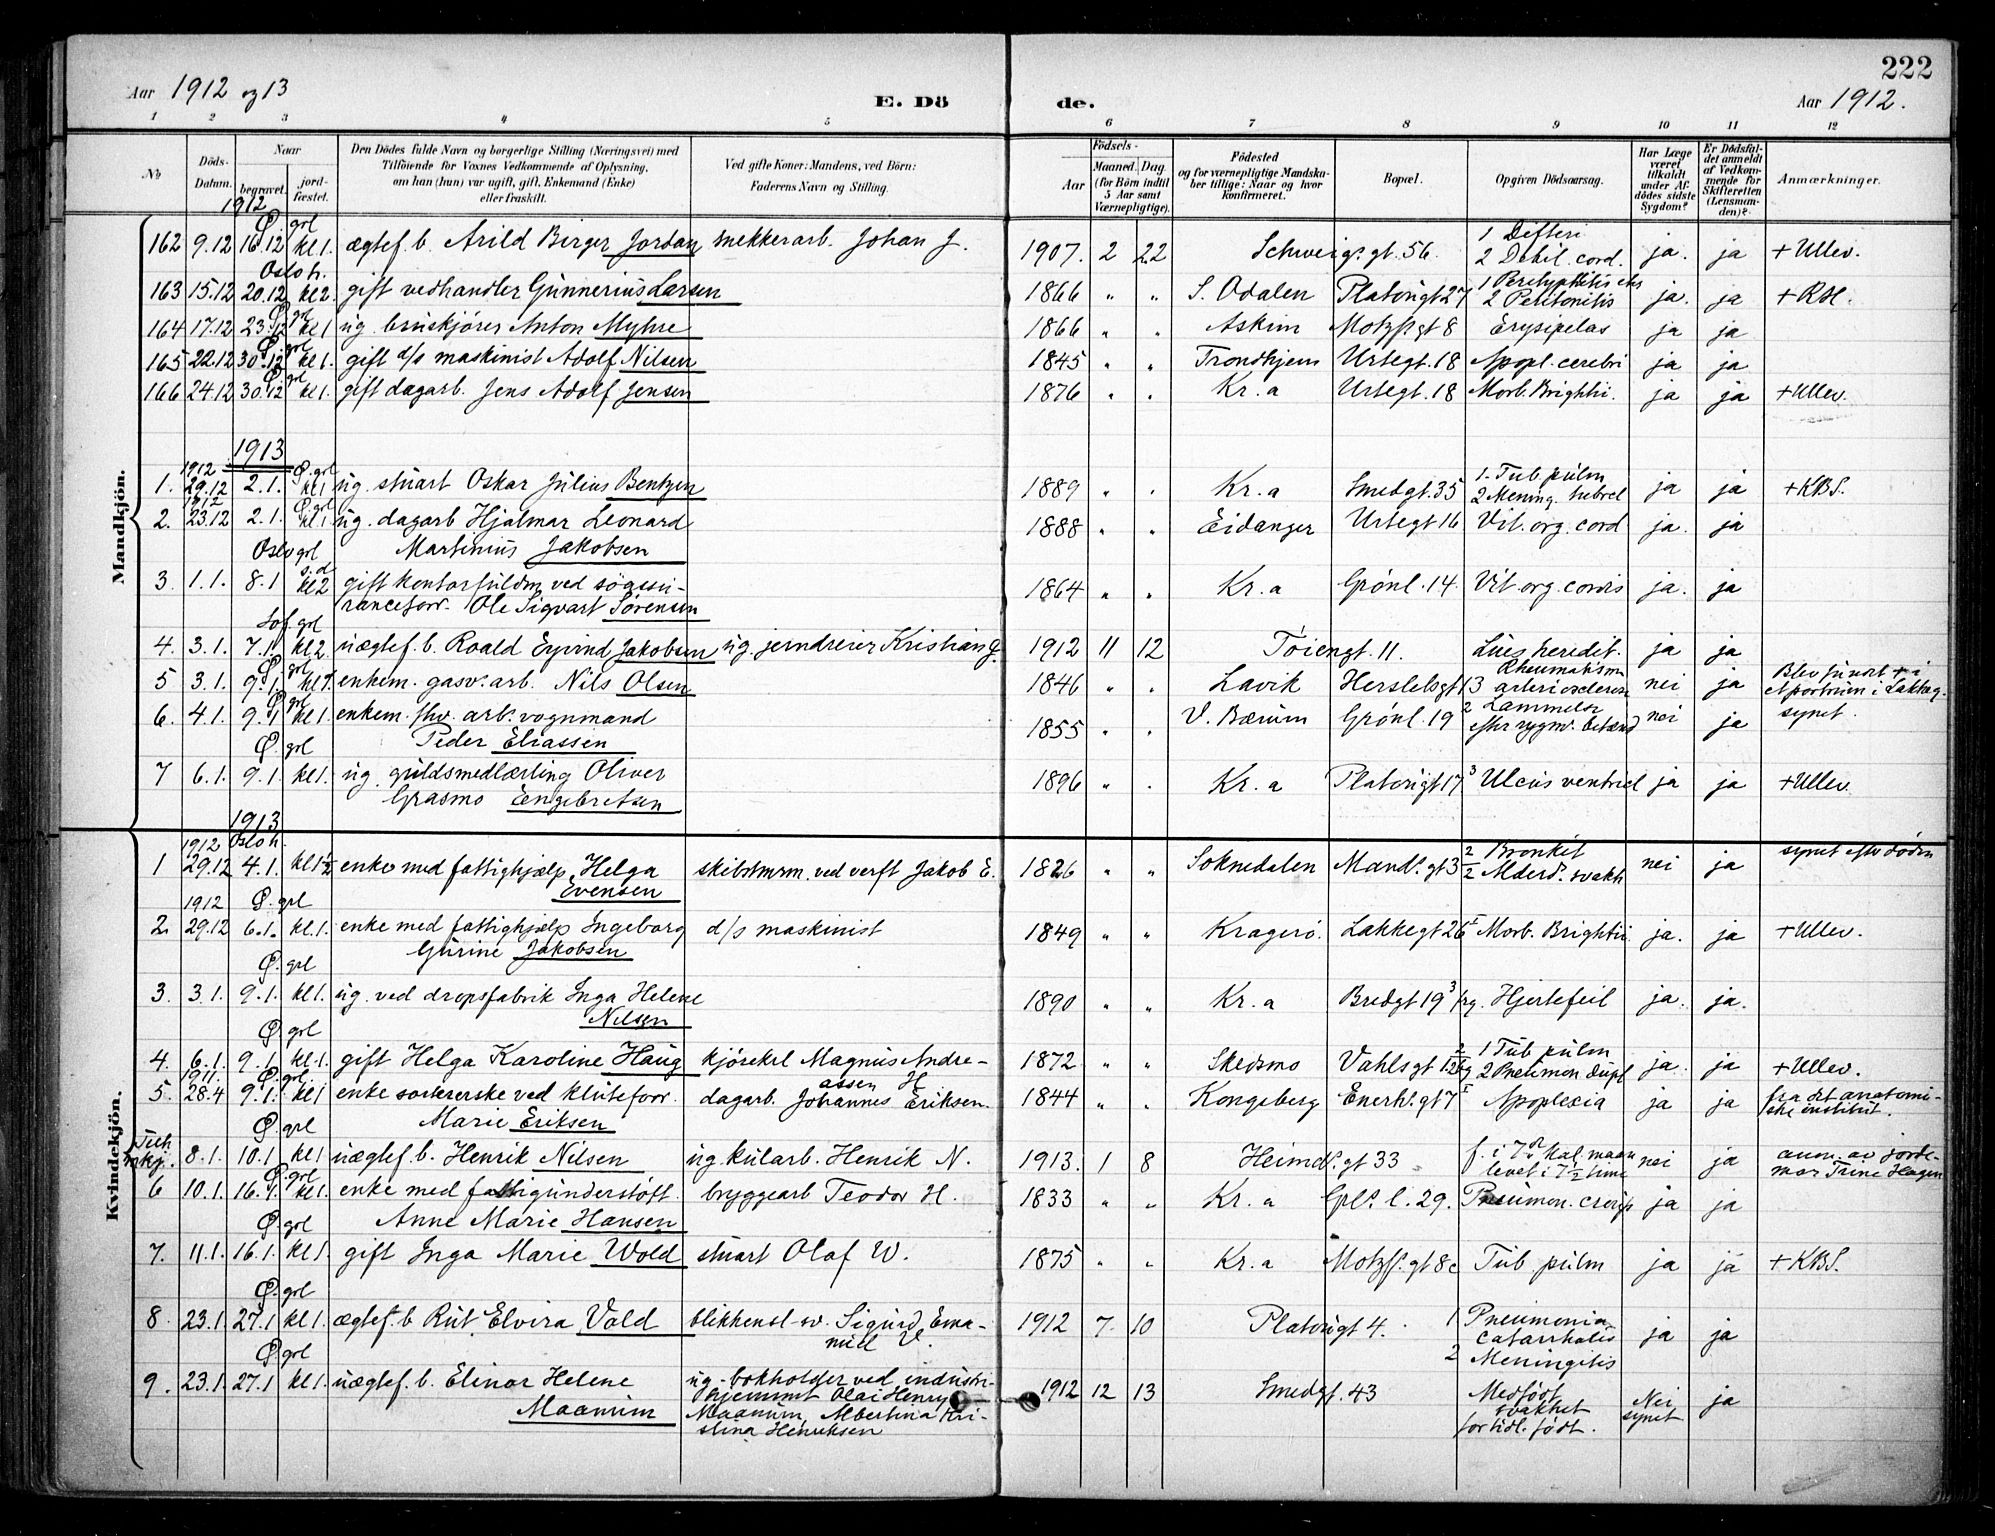 222
Aar 1912 og 13
E. Döde.
Aar 1912.
1 2 3 4 5 6 7 8 9 10 11 12
No
Döds-Datum.
Naar begravet. jordfæstet.
Den Dödes fulde Navn og borgerlige Stilling (Næringsvei) med Tilföiende for Voxnes Vedkommende af Oplysning, om han (hun) var ugift, gift, Enkemand (Enke) eller fraskilt.
Ved gifte Koner: Mandens, ved Börn: Faderens Navn og Stilling.
Födsels- Aar Maaned. Dag. (for Börn indtil 5 Aar samt Værnepligtige).
Födested og for værnepligtige Mandskaber tillige: Naar og hvor konfirmeret.
Bopæl.
Opgiven Dödsaarsag.
Har Læge været tilkaldt under Afdödes sidste Sygdom?
Er Dödsfaldet anmeldt af Vedkommende for Skifteretten (Lensmanden)?
Anmærkninger.
Mandkjön.
1912
Ø. grl
162 9.12 16.12 kl 1. ægtef. b. Arild Birger Jordan snekkerarb. Johan J. 1907. 2 22 Schweigs. gt. 56. 1 Difteri 2 Debil. cord. ja. ja + Ullev.
Oslo h.
163 15.12 20.12 kl 2. gift vedhandler Gunnerius Larsen 1866 " " S. Odalen Platougt 27 2 Peritonitis ja. ja + RH.
Ø. grl
164 17.12 23.12 kl 1 ug. bruskjører Anton Myhre 1866 " " Askim Motzfs. gt 8 Erysipelas ja ja
Ø. grl
165 22.12 30.12 kl 1. gift d/s maskinist Adolf Nilsen 1845 " " Trondhjem Urtegt. 18 Apopl. cerebri ja ja
Ø. grl
166 24.12 30.12 kl 1. gift dagarb. Jens Adolf Jensen 1876 " " Kr.a Urtegt. 18 Morb. Brightii. ja ja + Ullev.
1913
1912 Ø. grl
1. 29.12 2.1. kl 1 ug. stuart Oskar Julius Bentzen 1889 " " Kr.a Smedgt. 35 1. Tub pulm 2 Mening. tubercl ja ja + KBS.
1912 Ø. grl
2. 23.12 2.1. kl 1. ug. dagarb Hjalmar Leonard Martinius Jakobsen 1888 " " Eidanger Urtegt 16 Vit. org. cord ja. ja
Oslo grl s.d
3. 1.1. 8.1 kl 2 gift kontorfuldm ved søassuranceforr. Ole Sigvart Sørensen 1864 " " Kr.a Grønl. 14. Vit. org. cordis ja. ja
Sof. grl
4. 3.1. 7.1. kl 2. uægtef. b. Roald Eyvind Jakobsen ug. jerndreier Kristian J. 1912 11 12 Tøiengt. 11. Lues heredit. ja ja
Ø. grl
5 3.1. 9.1. kl 1. enkem. gasv. arb. Nils Olsen 1846 " " Lavik Herslebsgt 13 Rheumatism arterioscleros nei ja Blev funnet + i et portrum i Lakkeg.
Ø. grl
6. 4.1. 9.1 kl 1. enkem. fhv. arb. vognmand Peder Eliassen 1855 " " V. Bærum Grønl. 19 2 Lammelse efter rygm. betænd nei ja synet.
Ø. grl
7 6.1. 9.1. kl 1. ug. guldsmedlærling Oliver Grasmo Engebretsen 1896 " " Kr.a Platougt 17 3 Ulcus ventricl ja ja + Ullev.
Kvindekjön.
1913
1912 Oslo h.
1 29.12 4.1. kl 1½ enke med fattighjælp Helga Evensen skibstmrm. ved verft Jakob E. 1826 " " Soknedalen Mands. gt 3 2/2 Bronkit Alderd. svakh nei ja synet efter døden
1912 Ø. grl
2. 29.12 6.1. kl 1. enke med fattighjælp Ingeborg Gurine Jakobsen d/s maskinist 1849 " " Kragerø. Lakkegt 26 I Morb. Brightii ja. ja + Ullev.
Ø. grl
3. 3.1. 9.1. kl 1. ug. ved dropsfabrik Inga Helene Nilsen 1890 " " Kr.a Bredgt 19 3 frg. Hjertefeil ja. ja.
Ø. grl
4. 6.1. 9.1. kl 1. gift Helga Karoline Haug kjørekrl Magnus Andreassen H 1872 " " Skedsmo Vahlsgt 1 1 Tub pulm 2 Pneumon dupl ja. ja + Ullev.
1911. Ø. grl
5. 28.4 9.1. kl 1 enke sortererske ved kluteforr. Marie Eriksen dagarb. Johannes Eriksen. 1844 " " Kongsberg Enerh. gt 7 I Apoplexia ja ja fra det anatomiske institut.
Ø. grl
Tvh mkj. 8.1. 10.1 kl 1 uægtef. b. Henrik Nilsen ug. kularb. Henrik N. 1913. 1 8 Heimds. gt 33 f. i 7de kal. maan levet i 7½ time nei ja anm. av jordemor Trine Hagen
Ø. grl
6 10.1. 16.1. kl 1. enke med fattigunderstøtt. Anne Marie Hansen bryggearb Teodor H. 1833 " " Kr.a Grls. l. 29. Pneumon. croup ja ja
Ø. grl
7. 11.1. 16.1. kl 1. gift Inga Marie Wold stuart Olaf W. 1875 " " Kr.a Motzfs. gt 8c Tub pulm ja ja + KBS.
Ø. grl
8. 23.1. 27.1 kl 1. ægtef. b Rut Elvira Vold blikkensl. sv. Sigurd Emanuel V. 1912 7. 10 Platougt 4. 1 Pneumonia catarrhalis 2 Meningitis ja ja
Ø. grl
9. 23.1. 27.1 kl 1. uægtef. b. Elinor Helene Maanum ug. bokholder ved industrihjemmet Olai Henry Maanum, Albertina Kristina Henriksen 1912 12 13 Smedgt. 43 Medfødt svakhet for tidl. født. Nei synet ja